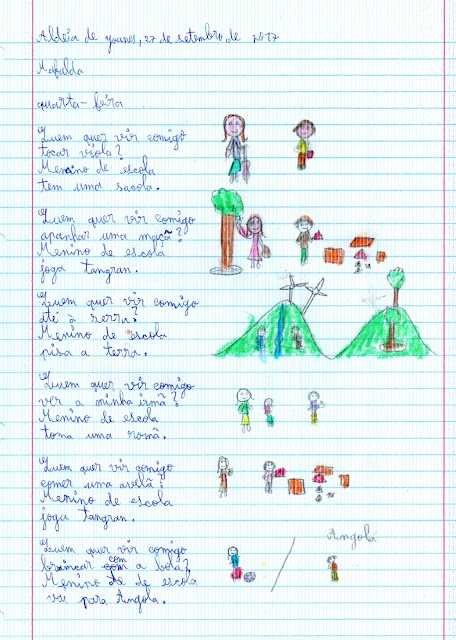 Aldeia de Joanes, 27 de setembro de 2017
Mafalda
quarta-feira
Quem quer vir comigo
tocar viola?
Menino de escola
tem uma sacola.
Quem quer vir comigo
apanhar uma maçã?
Menino de escola
joga tangran.
Quem quer vir comigo
até à serra?
Menino de escola
pisa a terra.
Quem quer vir comigo
ver a minha irmã?
Menino de escola
toma uma romã.
Quem quer vir comigo
comer uma avelã?
Menino de escola
joga tangran.
Angola
Quem quer vir comigo
brincar com a bola?
Menino de escola
vai para Angola.